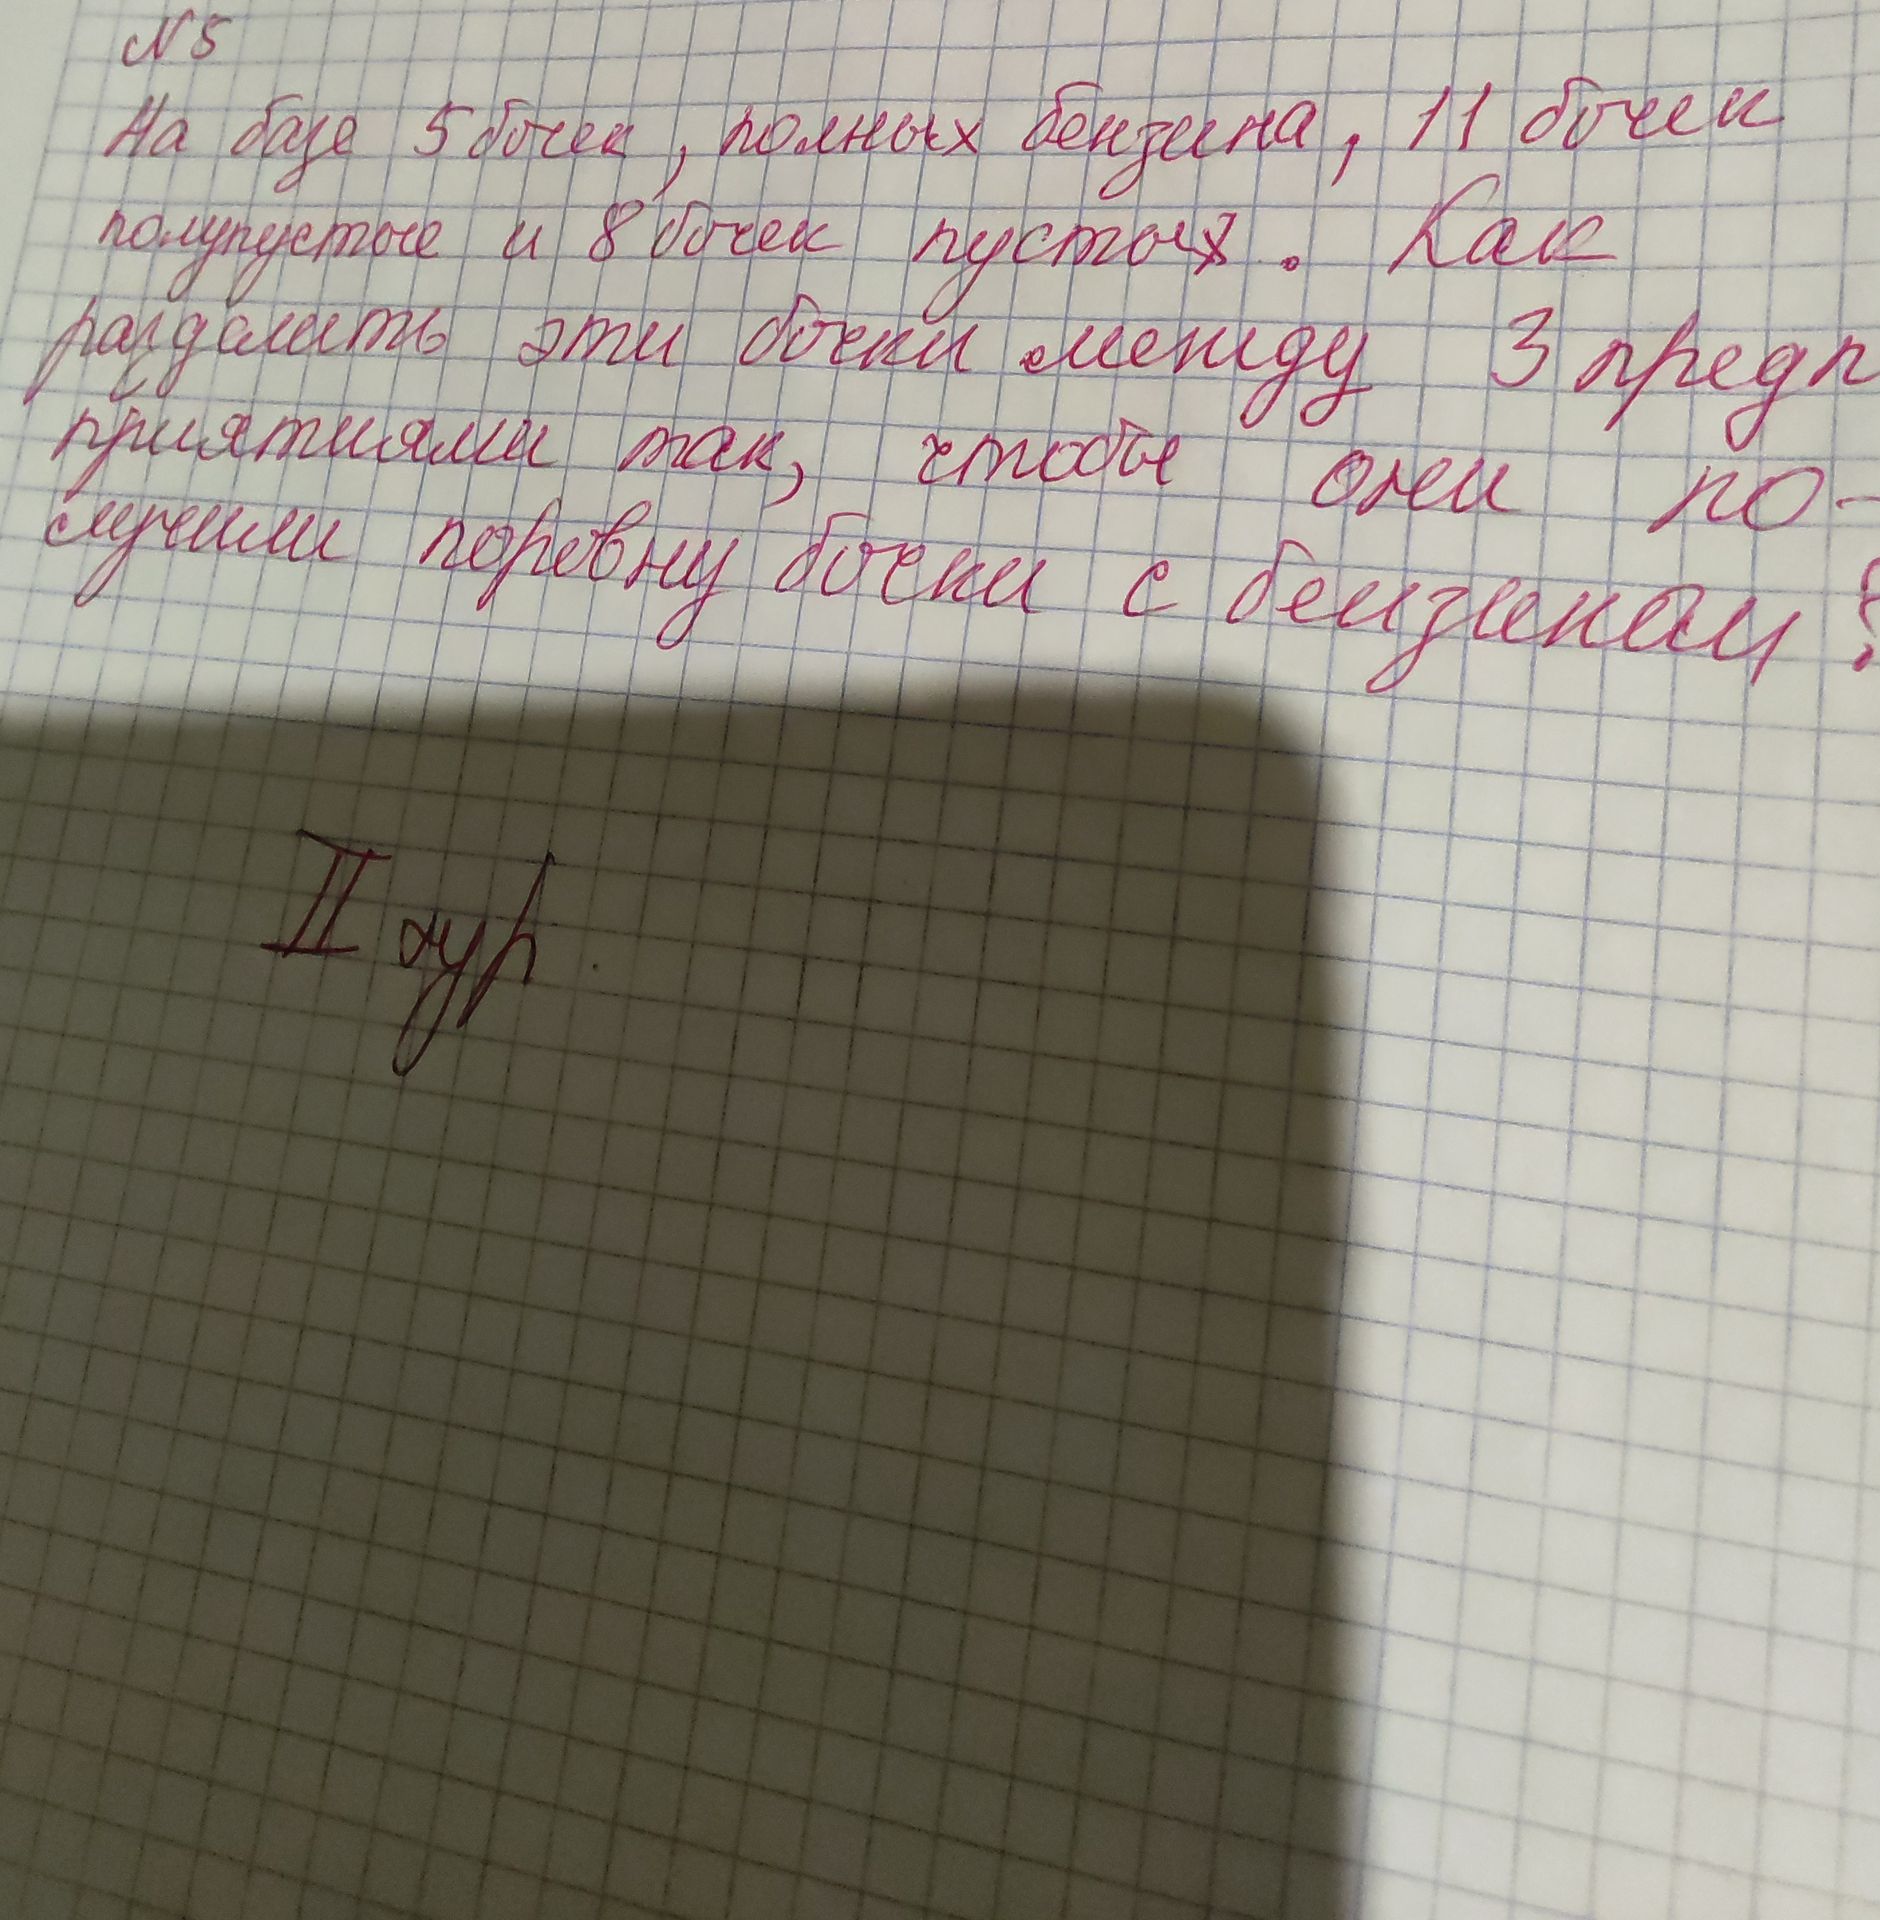 N 5
На базе 5 бочек, полных бензина, 11 бочек
полупустые и 8 бочек пустых. Как
разделить эти бочки между 3 предп
приятиями так, чтобы они по-
лучили поровну бочки с бензином?
II тур